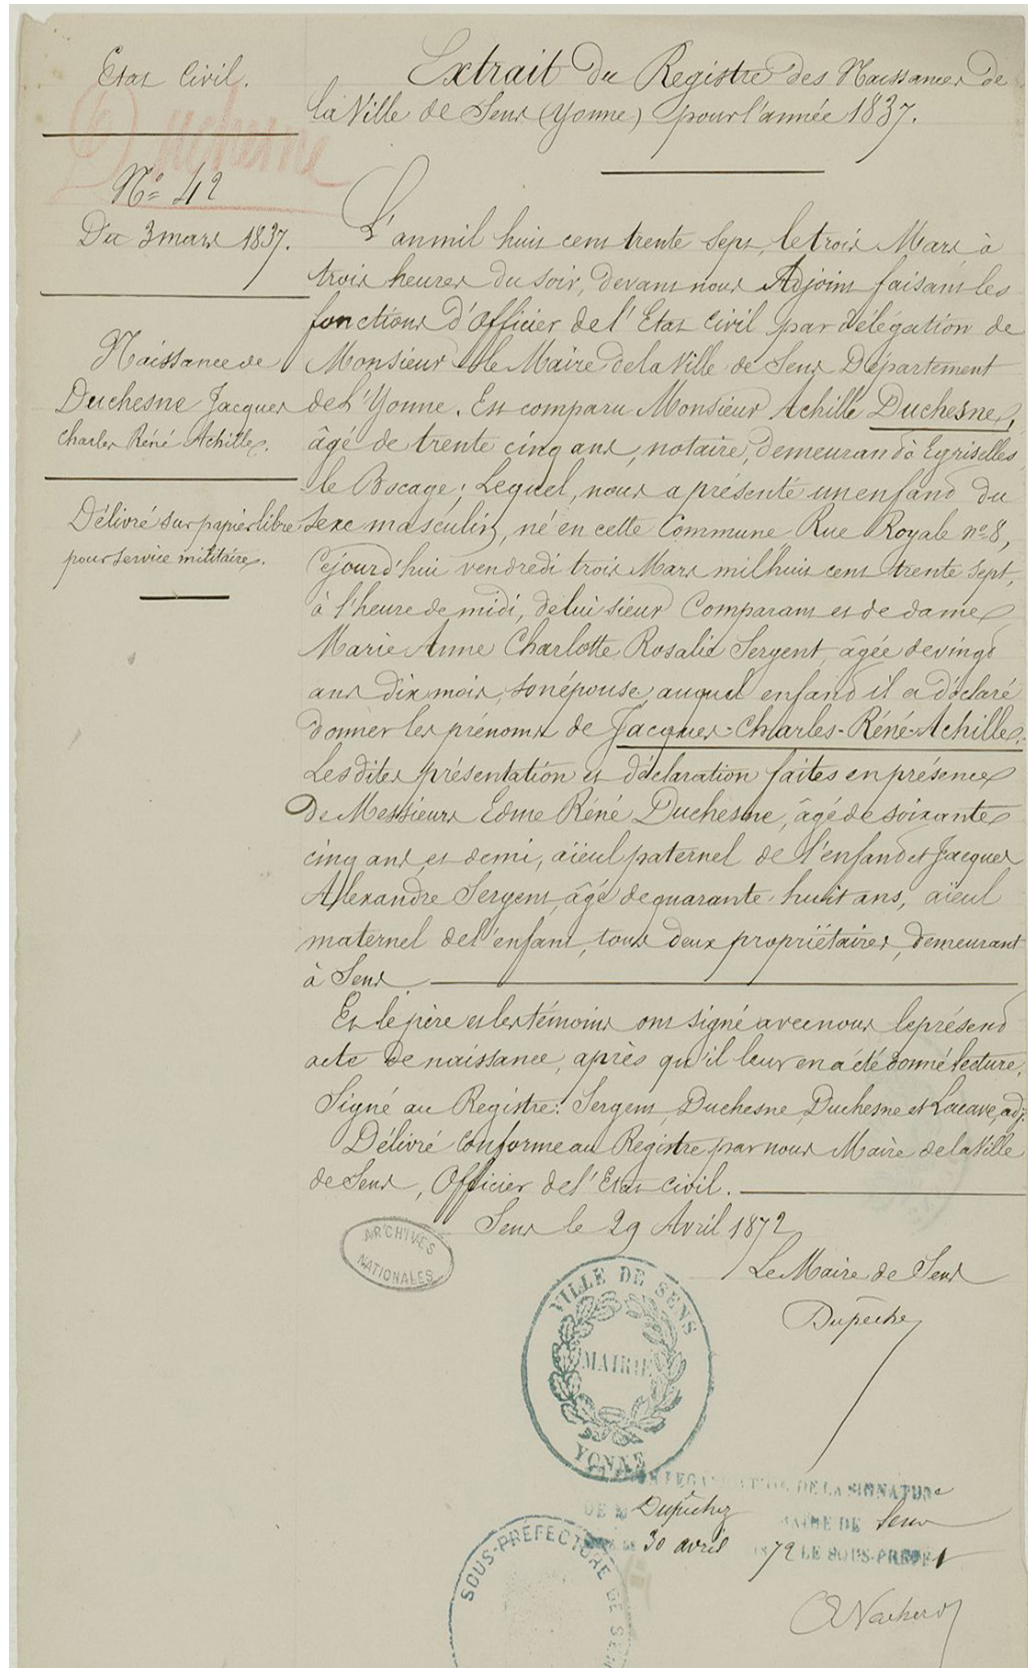 Etat Civil.
Duchesne
N° 42
Du 3 mars 1837.
Naissance de
Duchesne Jacques
Charles Réné Achille.
Délivré sur papier libre
pour service militaire.
Extrait du Registre des Naissances de
la Ville de Sens (Yonne) pour l'année 1837.
L'an mil huit cent trente sept, le trois Mars à
trois heures du soir, devant nous Adjoint faisant les
fonctions d'Officier de l'Etat Civil par délégation de
Monsieur le Maire de la Ville de Sens Département
de l'Yonne. Est comparu Monsieur Achille Duchesne,
âgé de trente cinq ans, notaire, demeurant à Egriselles
le Bocage; Lequel, nous a présenté un enfant du
sexe masculin, né en cette Commune Rue Royale n° 8,
Cejourd'hui vendredi trois Mars mil huit cent trente sept,
à l'heure de midi, de lui sieur Comparant et de dame
Marie Anne Charlotte Rosalie Sergent, âgée de vingt
ans dix mois, son épouse, auquel enfant il a déclaré
donner les prénoms de Jacques-Charles-Réné-Achille.
Les dites présentation et déclaration faites en présence
De Messieurs Edme Réné Duchesne, âgé de soixante
cinq ans et demi, aïeul paternel de l'enfant et Jacques
Alexandre Sergent, âgé de quarante huit ans, aïeul
maternel de l'enfant, tous deux propriétaires, demeurant
à Sens.
Et le père et les témoins ont signé avec nous le présent
acte de naissance, après qu'il leur en a été donné lecture.
Signé au Registre: Sergent, Duchesne, Duchesne et Lacave, adj.
Délivré conforme au Registre par nous Maire de la Ville
de Sens, Officier de l'Etat Civil.
Sens le 29 Avril 1872
Le Maire de Sens
ARCHIVES
NATIONALES
VILLE DE SENS
MAIRIE
YONNE
DE LA SIGNATURE
DE M
MAIRE DE Sens
30 avril 1872 LE SOUS-PRÉFET
SOUS-PRÉFECTURE DE SENS